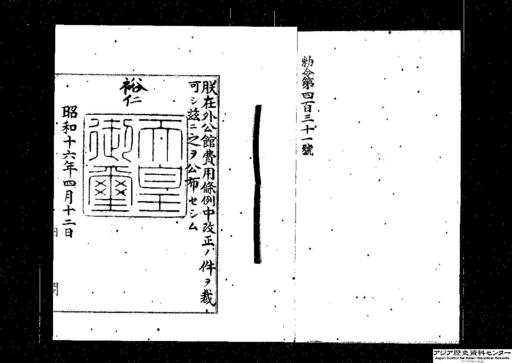 勅令第四百三十一號
朕在外公館費用條例中改正ノ件ヲ裁
可シ茲ニ之ヲ公布セシム
裕仁
天皇
御璽
昭和十六年四月十二日
アジア歴史資料センター
Japan Center for Asian Historical Records